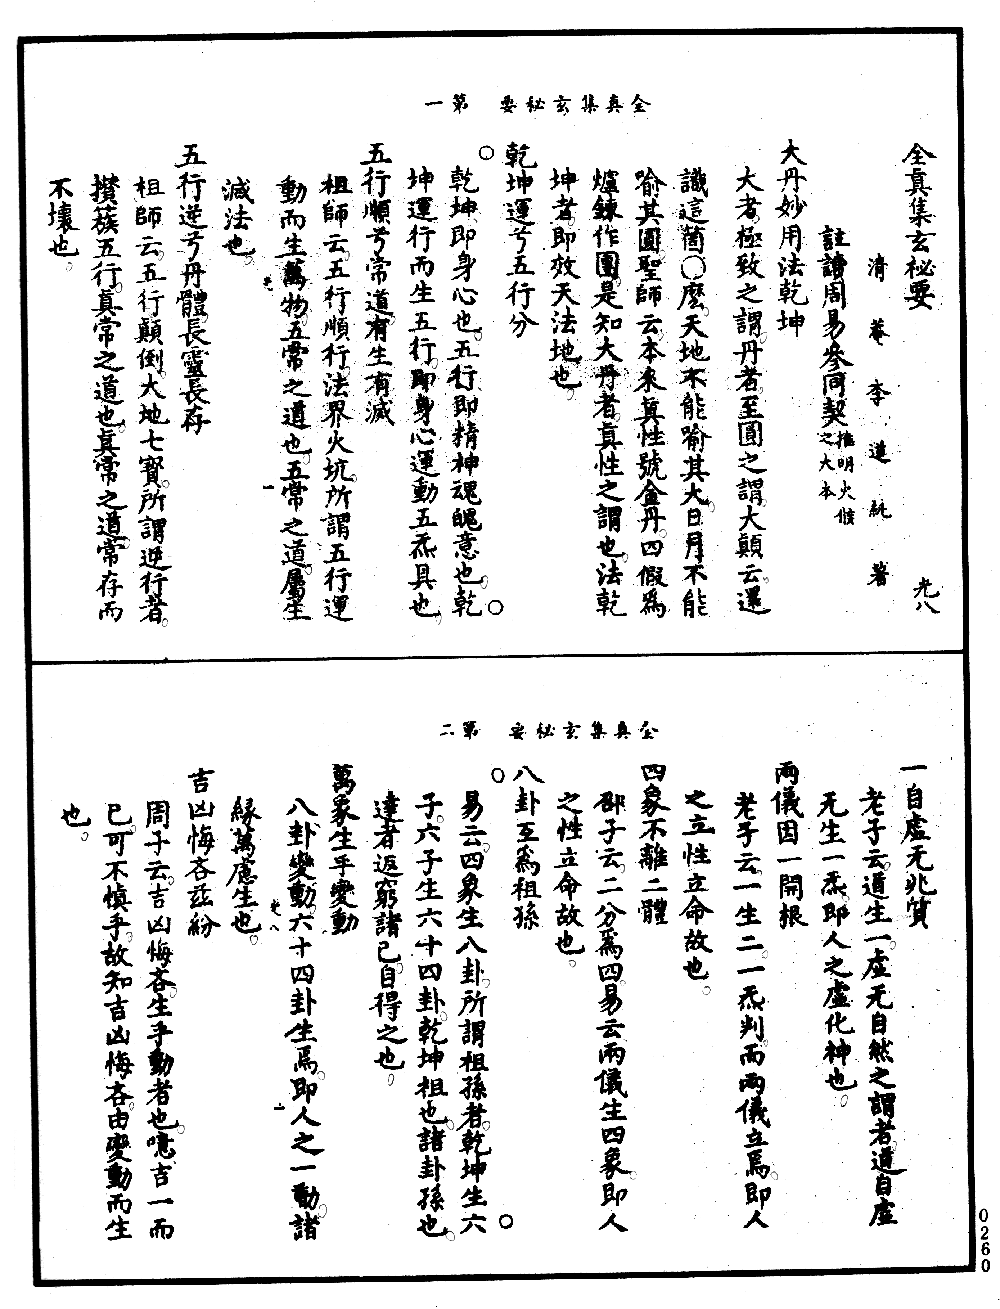 全真集玄秘要 第一
全真集玄秘要 光八
清菴李道純著
註讀周易參同契推明火候之大本
大丹妙用法乾坤
大者極致之謂丹者至圓之謂大顛云還
識這箇〇麼天地不能喻其大日月不能
喻其圓聖師云本來真性號金丹四假為
爐鍊作團是知大丹者真性之謂也法乾
坤者即效天法地也
乾坤運兮五行分
乾坤即身心也五行即精神魂魄意也乾
坤運行而生五行即身心運動五炁具也
五行順兮常道有生有滅
祖師云五行順行法界火坑所謂五行運
動而生萬物五常之道也五常之道屬生
滅法也
五行逆兮丹體長靈長存
祖師云五行顛倒大地七寶所謂逆行者
攢簇五行真常之道也真常之道常存而
不壞也
全真集玄秘要 第二
一自虛无兆質
老子云道生一虛无自然之謂者道自虛
无生一炁即人之虛化神也
兩儀因一開根
老子云一生二一炁判而兩儀立焉即人
之立性立命故也
四象不離二體
邵子云二分為四易云兩儀生四象即人
之性立命故也
八卦互為祖孫
易云四象生八卦所謂祖孫者乾坤生六
子六子生六十四卦乾坤祖也諸卦孫也
達者返窮諸己自得之也
萬象生乎變動
八卦變動六十四卦生焉即人之一動諸
緣萬慮生也
吉凶悔吝茲紛
周子云吉凶悔吝生乎動者也噫吉一而
已可不慎乎故知吉凶悔吝由變動而生
也
0260